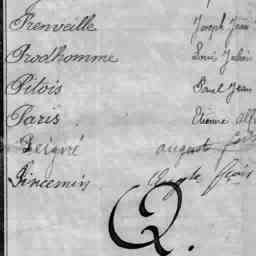 Frenveille Joseph Jean
Prodhomme Louis Julien
Pitois Paul Jean
Paris Etienne Alf
Peigné august
Pincemin
Q.